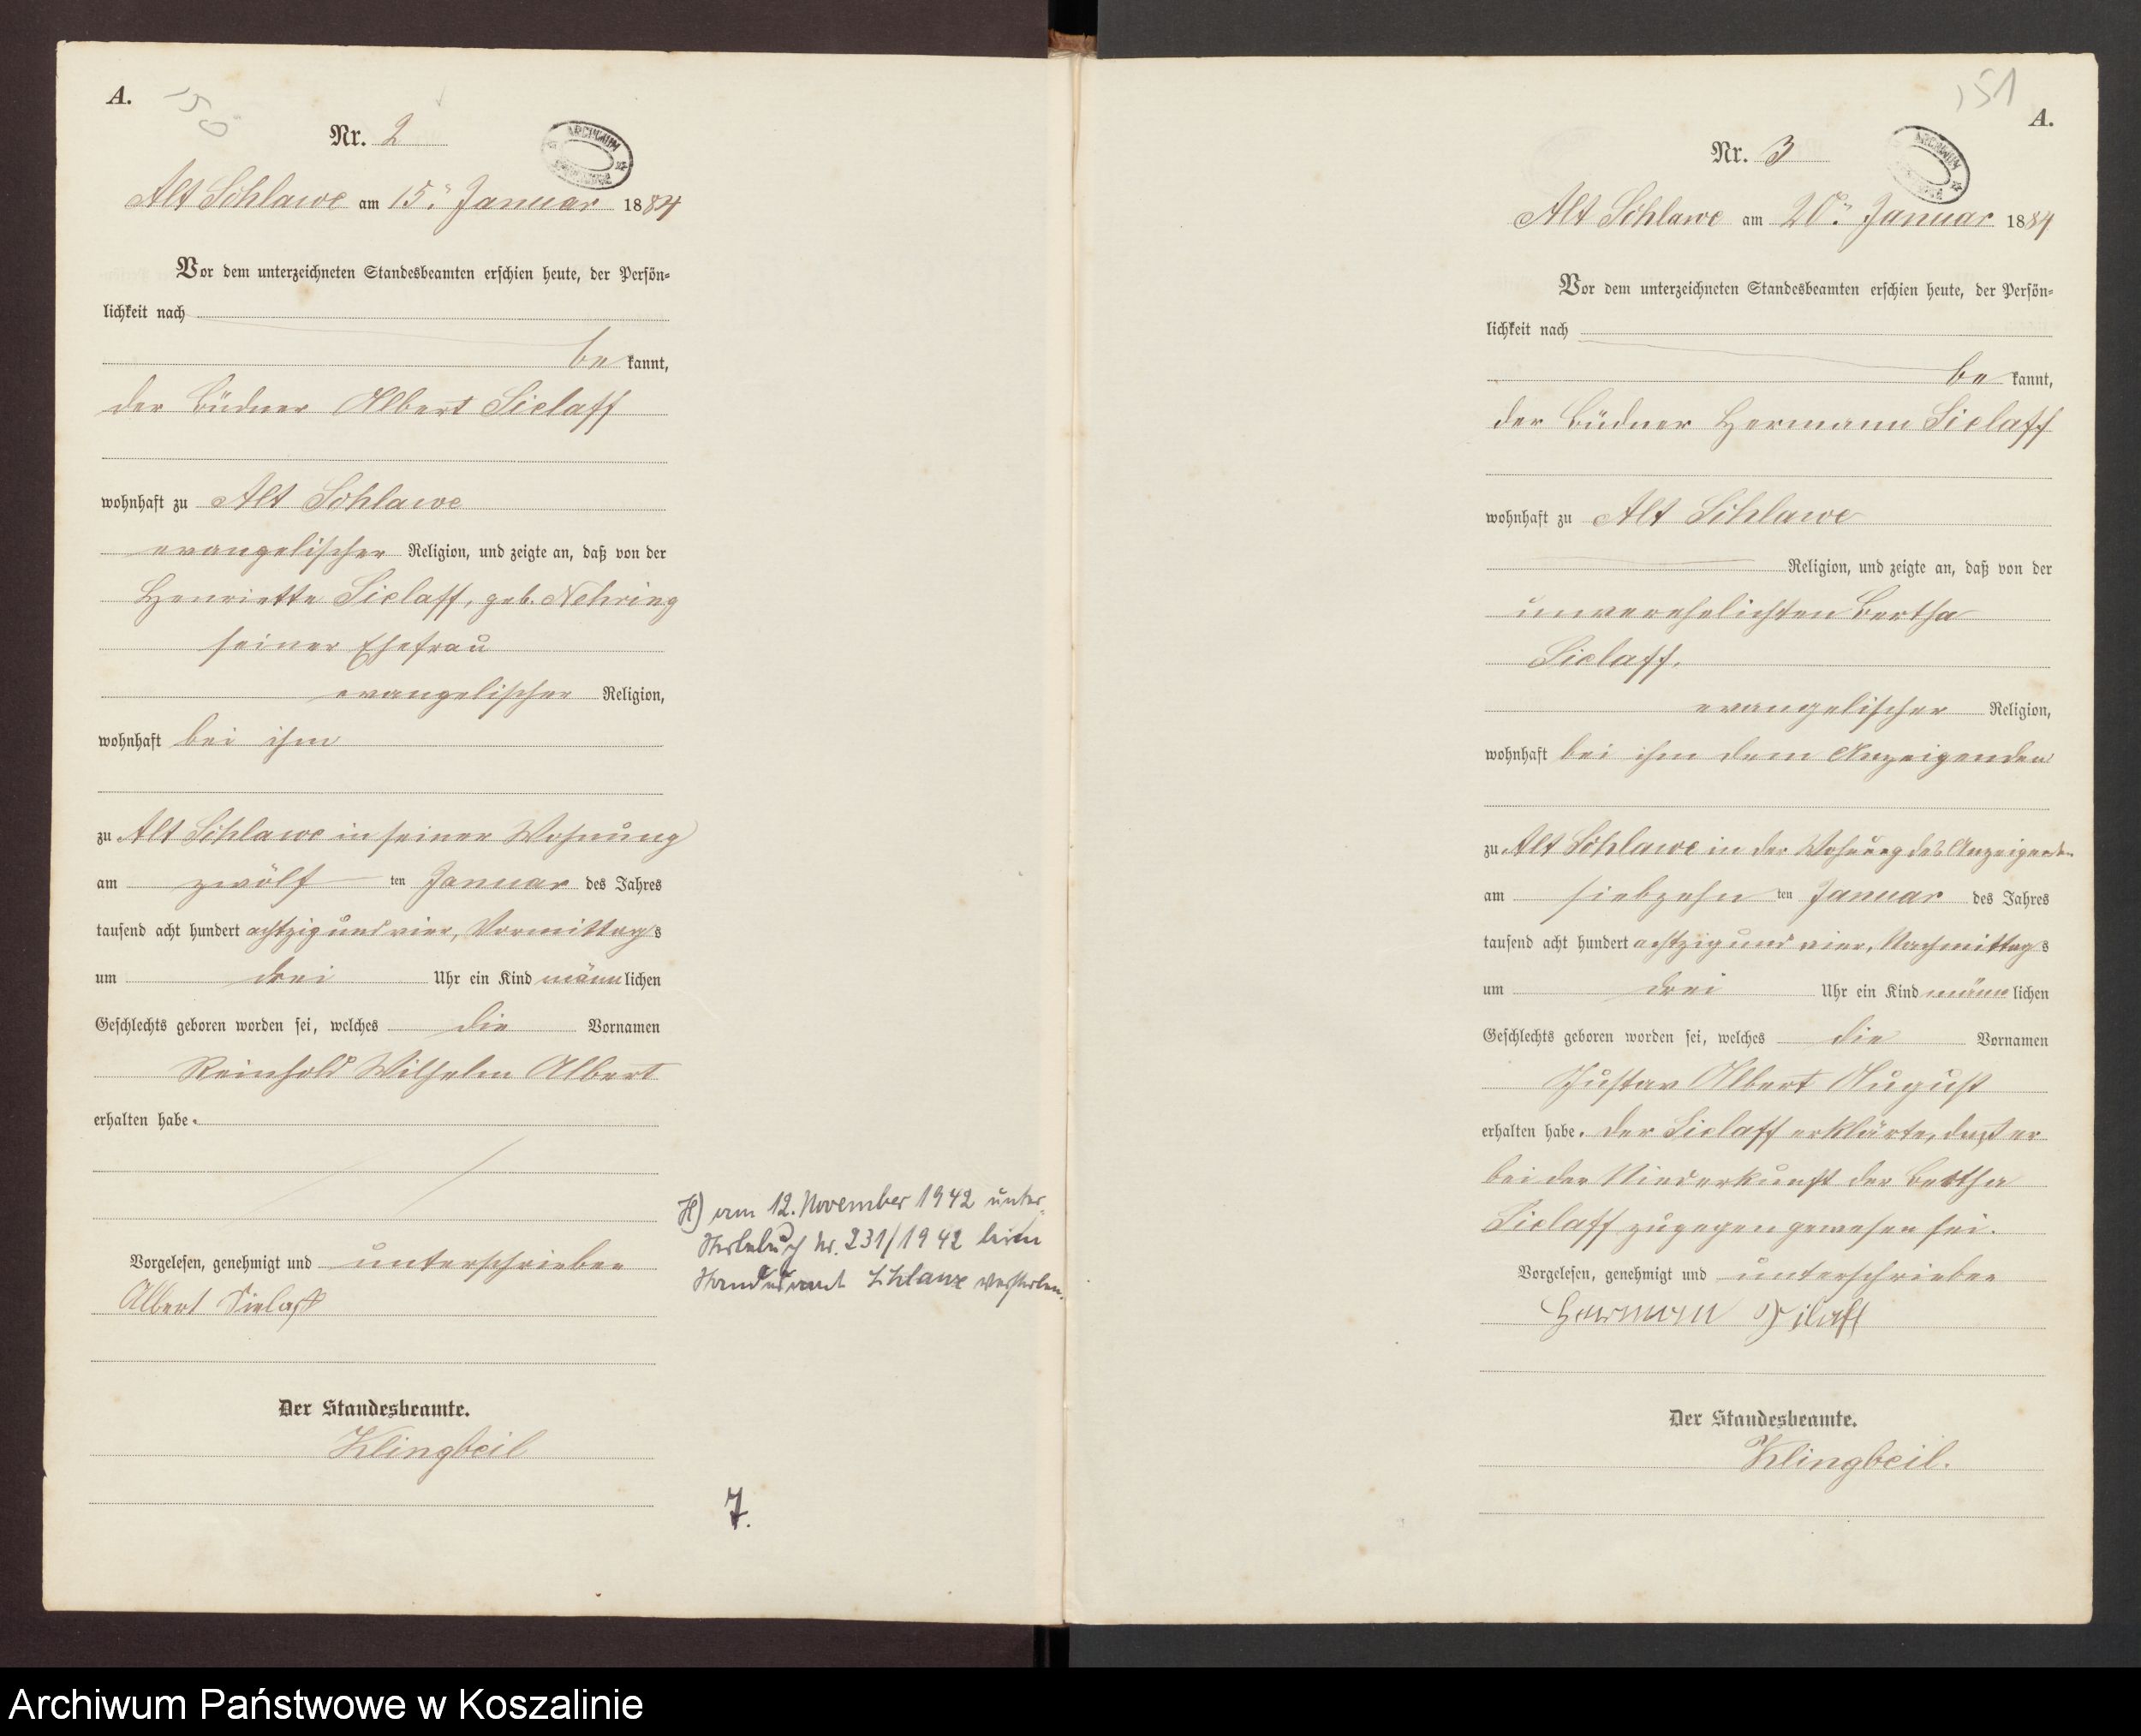 A.
150
Nr. 2
ARCHIWUM
Alt Schlawe am 15. Januar 1884
Vor dem unterzeichneten Standesbeamten erschien heute, der Persön-
lichkeit nach
be kannt,
der Büdner Albert Sielaff
wohnhaft zu Alt Schlawe
evangelischer Religion, und zeigte an, daß von der
Henriette Sielaff, geb. Nehring
seiner Ehefrau
evangelischer Religion,
wohnhaft bei ihm
zu Alt Schlawe in seiner Wohnung
am zwölf ten Januar des Jahres
tausend acht hundert achtzig und vier, Vormittags
um drei Uhr ein Kind männlichen
Geschlechts geboren worden sei, welches die Vornamen
Reinhold Wilhelm Albert
erhalten habe.
Vorgelesen, genehmigt und unterschrieben
Albert Sielaff
Der Standesbeamte.
Klingbeil
H) am 12. November 1942 unter
Sterbebuch Nr. 231/1942 beim
Standesamt Schlawe verstorben.
7.
151
A.
Nr. 3
ARCHIWUM
Alt Schlawe am 20. Januar 1884
Vor dem unterzeichneten Standesbeamten erschien heute, der Persön-
lichkeit nach
be kannt,
der Büdner Hermann Sielaff
wohnhaft zu Alt Schlawe
Religion, und zeigte an, daß von der
unverehelichten Bertha
Sielaff.
evangelischer Religion,
wohnhaft bei ihm dem Anzeigenden
zu Alt Schlawe in der Wohnung des Anzeigenden
am siebzehn ten Januar des Jahres
tausend acht hundert achtzig und vier, Nachmittags
um drei Uhr ein Kind männlichen
Geschlechts geboren worden sei, welches die Vornamen
Gustav Albert August
erhalten habe. der Sielaff erklärte, daß er
bei der Niederkunft der Bertha
Sielaff zugegen gewesen sei.
Vorgelesen, genehmigt und unterschrieben
Herman Silaff
Der Standesbeamte.
Klingbeil.
Archiwum Państwowe w Koszalinie